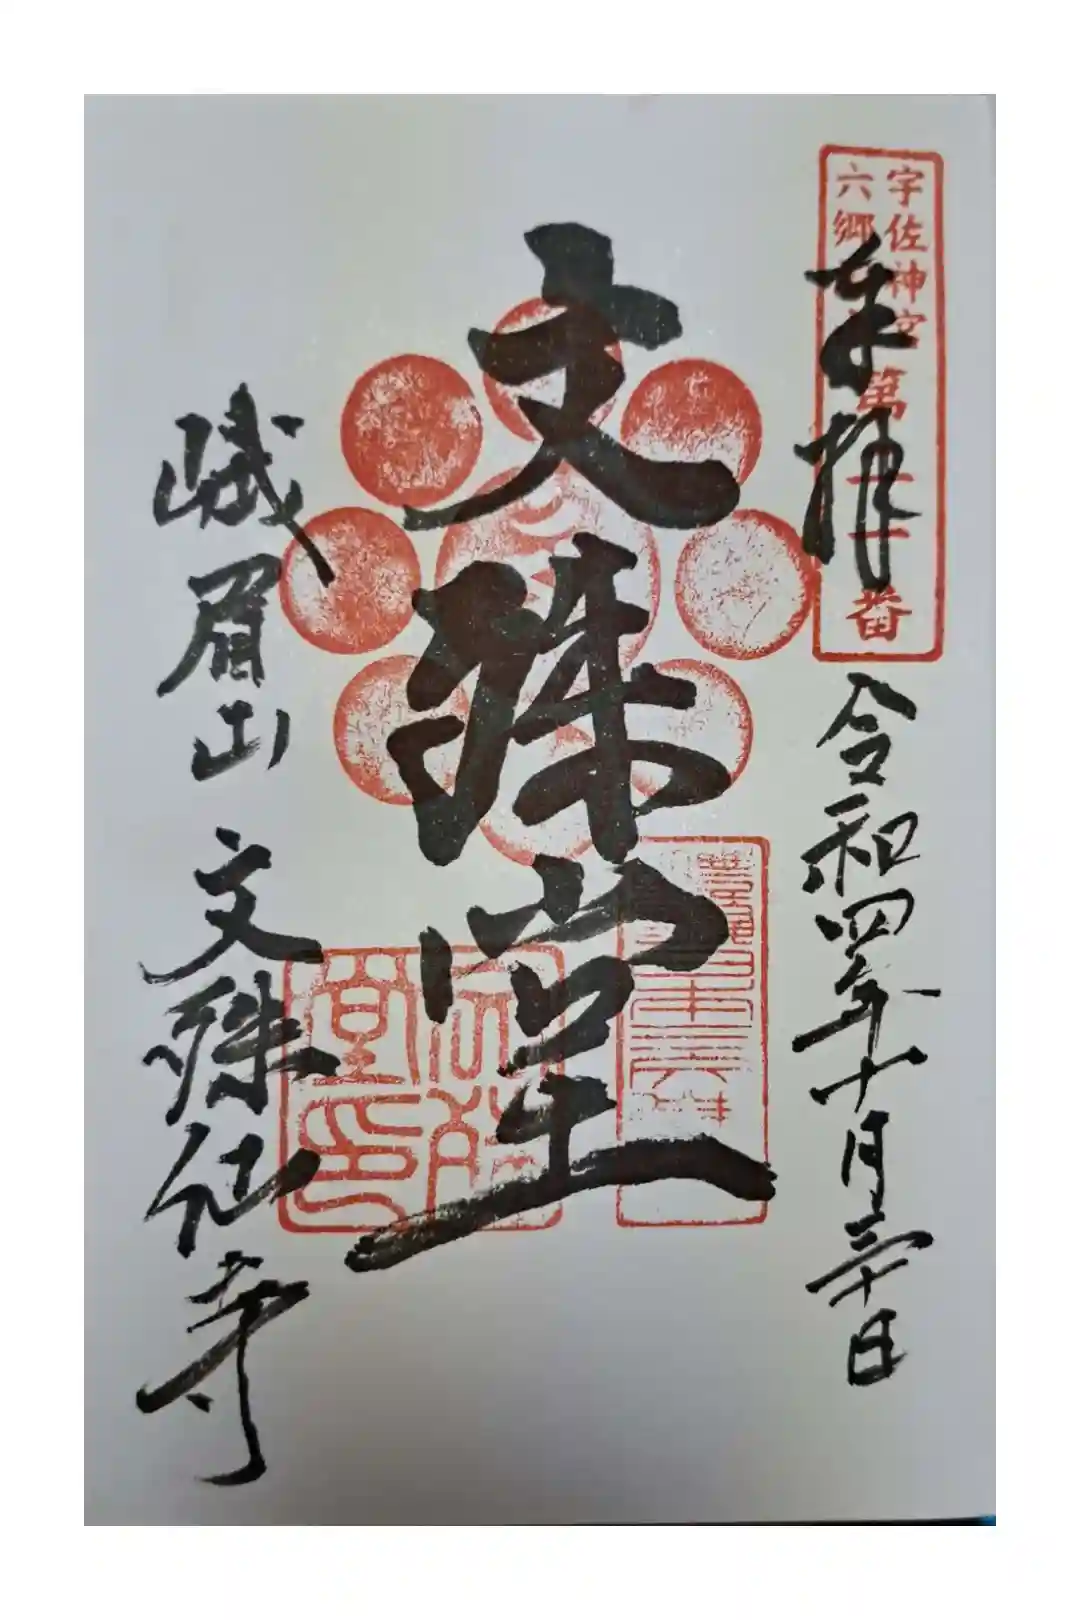 宇佐神宮
六郷
第
番
奉拝
令和四年十月三十日
文殊堂
堂印
峨眉山 文殊仙寺